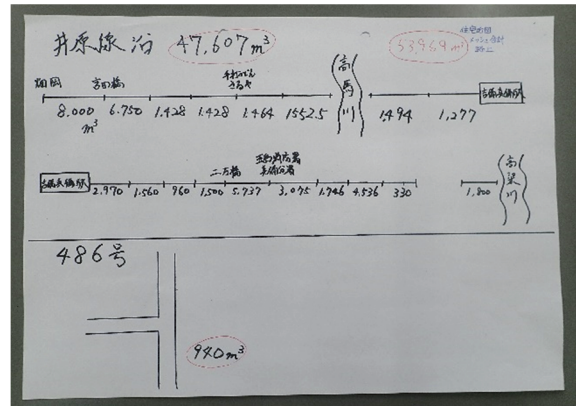 井原線沿 47,607m³
53,969m³
畑岡 吉田橋
高馬川
吉備真備駅
8.000m³ 6.750 1.428 1.428 1.464 1552.5 1.494 1,277
吉備真備駅
二万橋
高梁川
2.970 1.560 960 1,500 5.737 3,075 1.746 4.536 330 1,800
486号
940m³